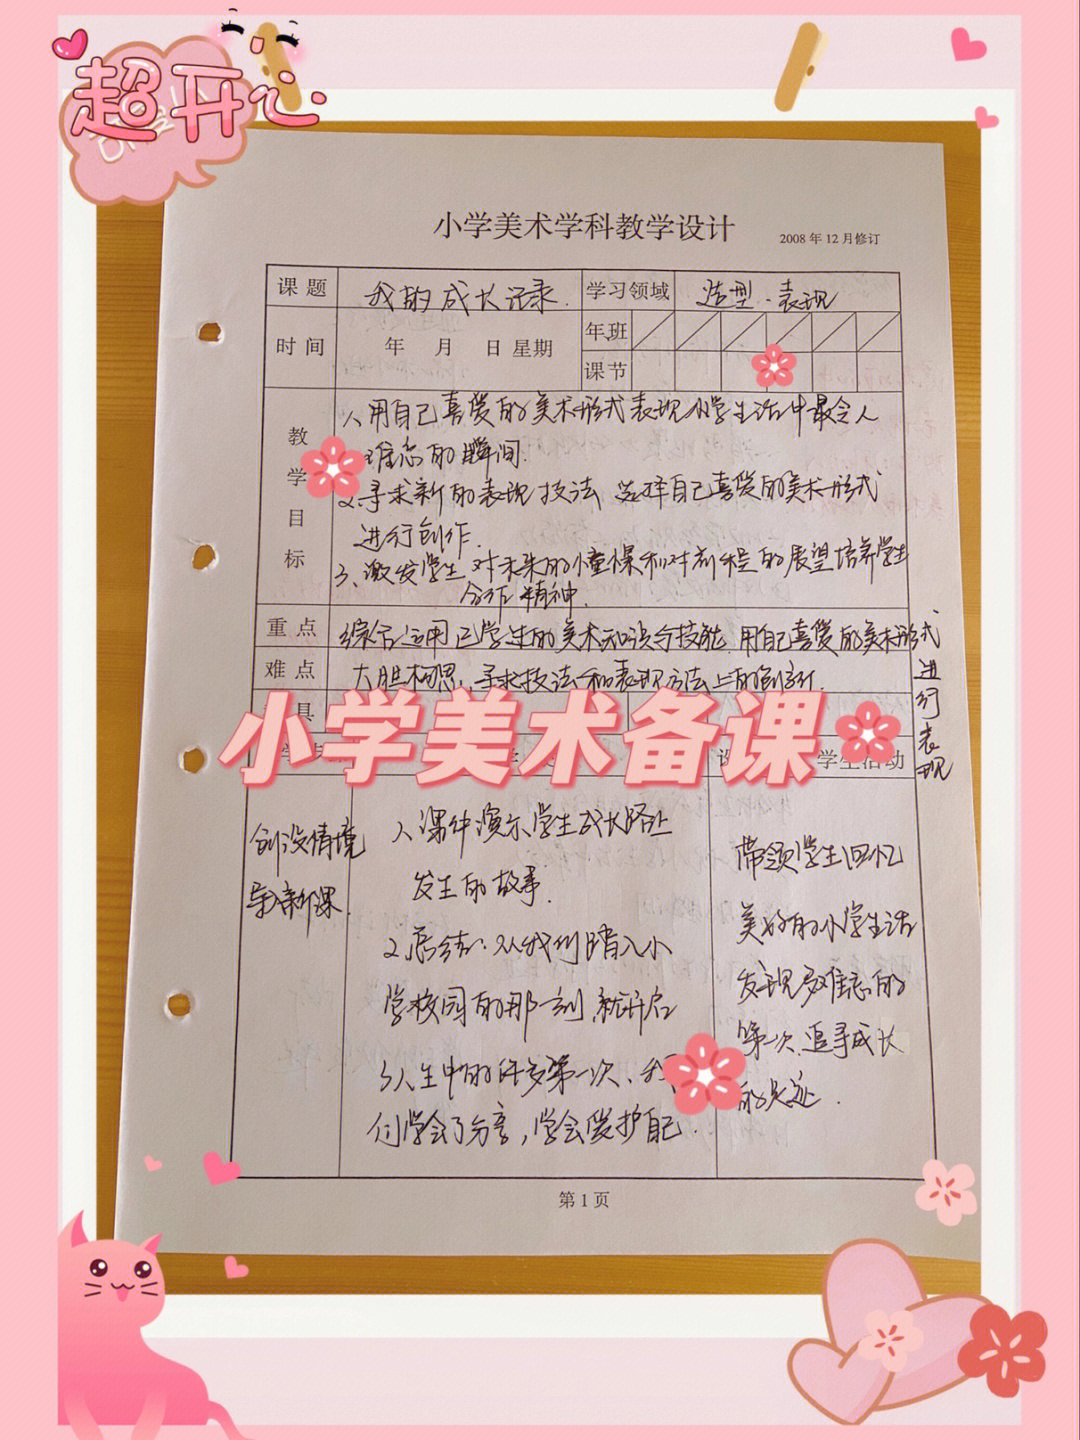 超开心
小学美术学科教学设计
2008 年 12 月修订
课题 我的成长记录. 学习领域 造型·表现
时间 年 月 日 星期 年班
课节
教学目标
1、用自己喜爱的美术形式表现小学生活中最令人
难忘的瞬间.
2、寻求新的表现技法、选择自己喜爱的美术形式
进行创作.
3、激发学生对未来的憧憬和对前程的展望培养学生
合作精神.
重点 综合运用已学过的美术知识与技能,用自己喜爱的美术形式
进行表现
难点 大胆构思、寻求技法和表现方法上的创新.
具
小学美术备课
学生活动
创设情境
导新课.
1、课件演示、学生成长路上
发生的故事.
2、总结:从我们踏入小
学校园的那一刻,就开启
了人生中的许多第一次、我
们学会了分享,学会爱护自己.
带领学生回忆
美好的小学生活
发现难忘的
第一次、追寻成长
的足迹.
第 1 页